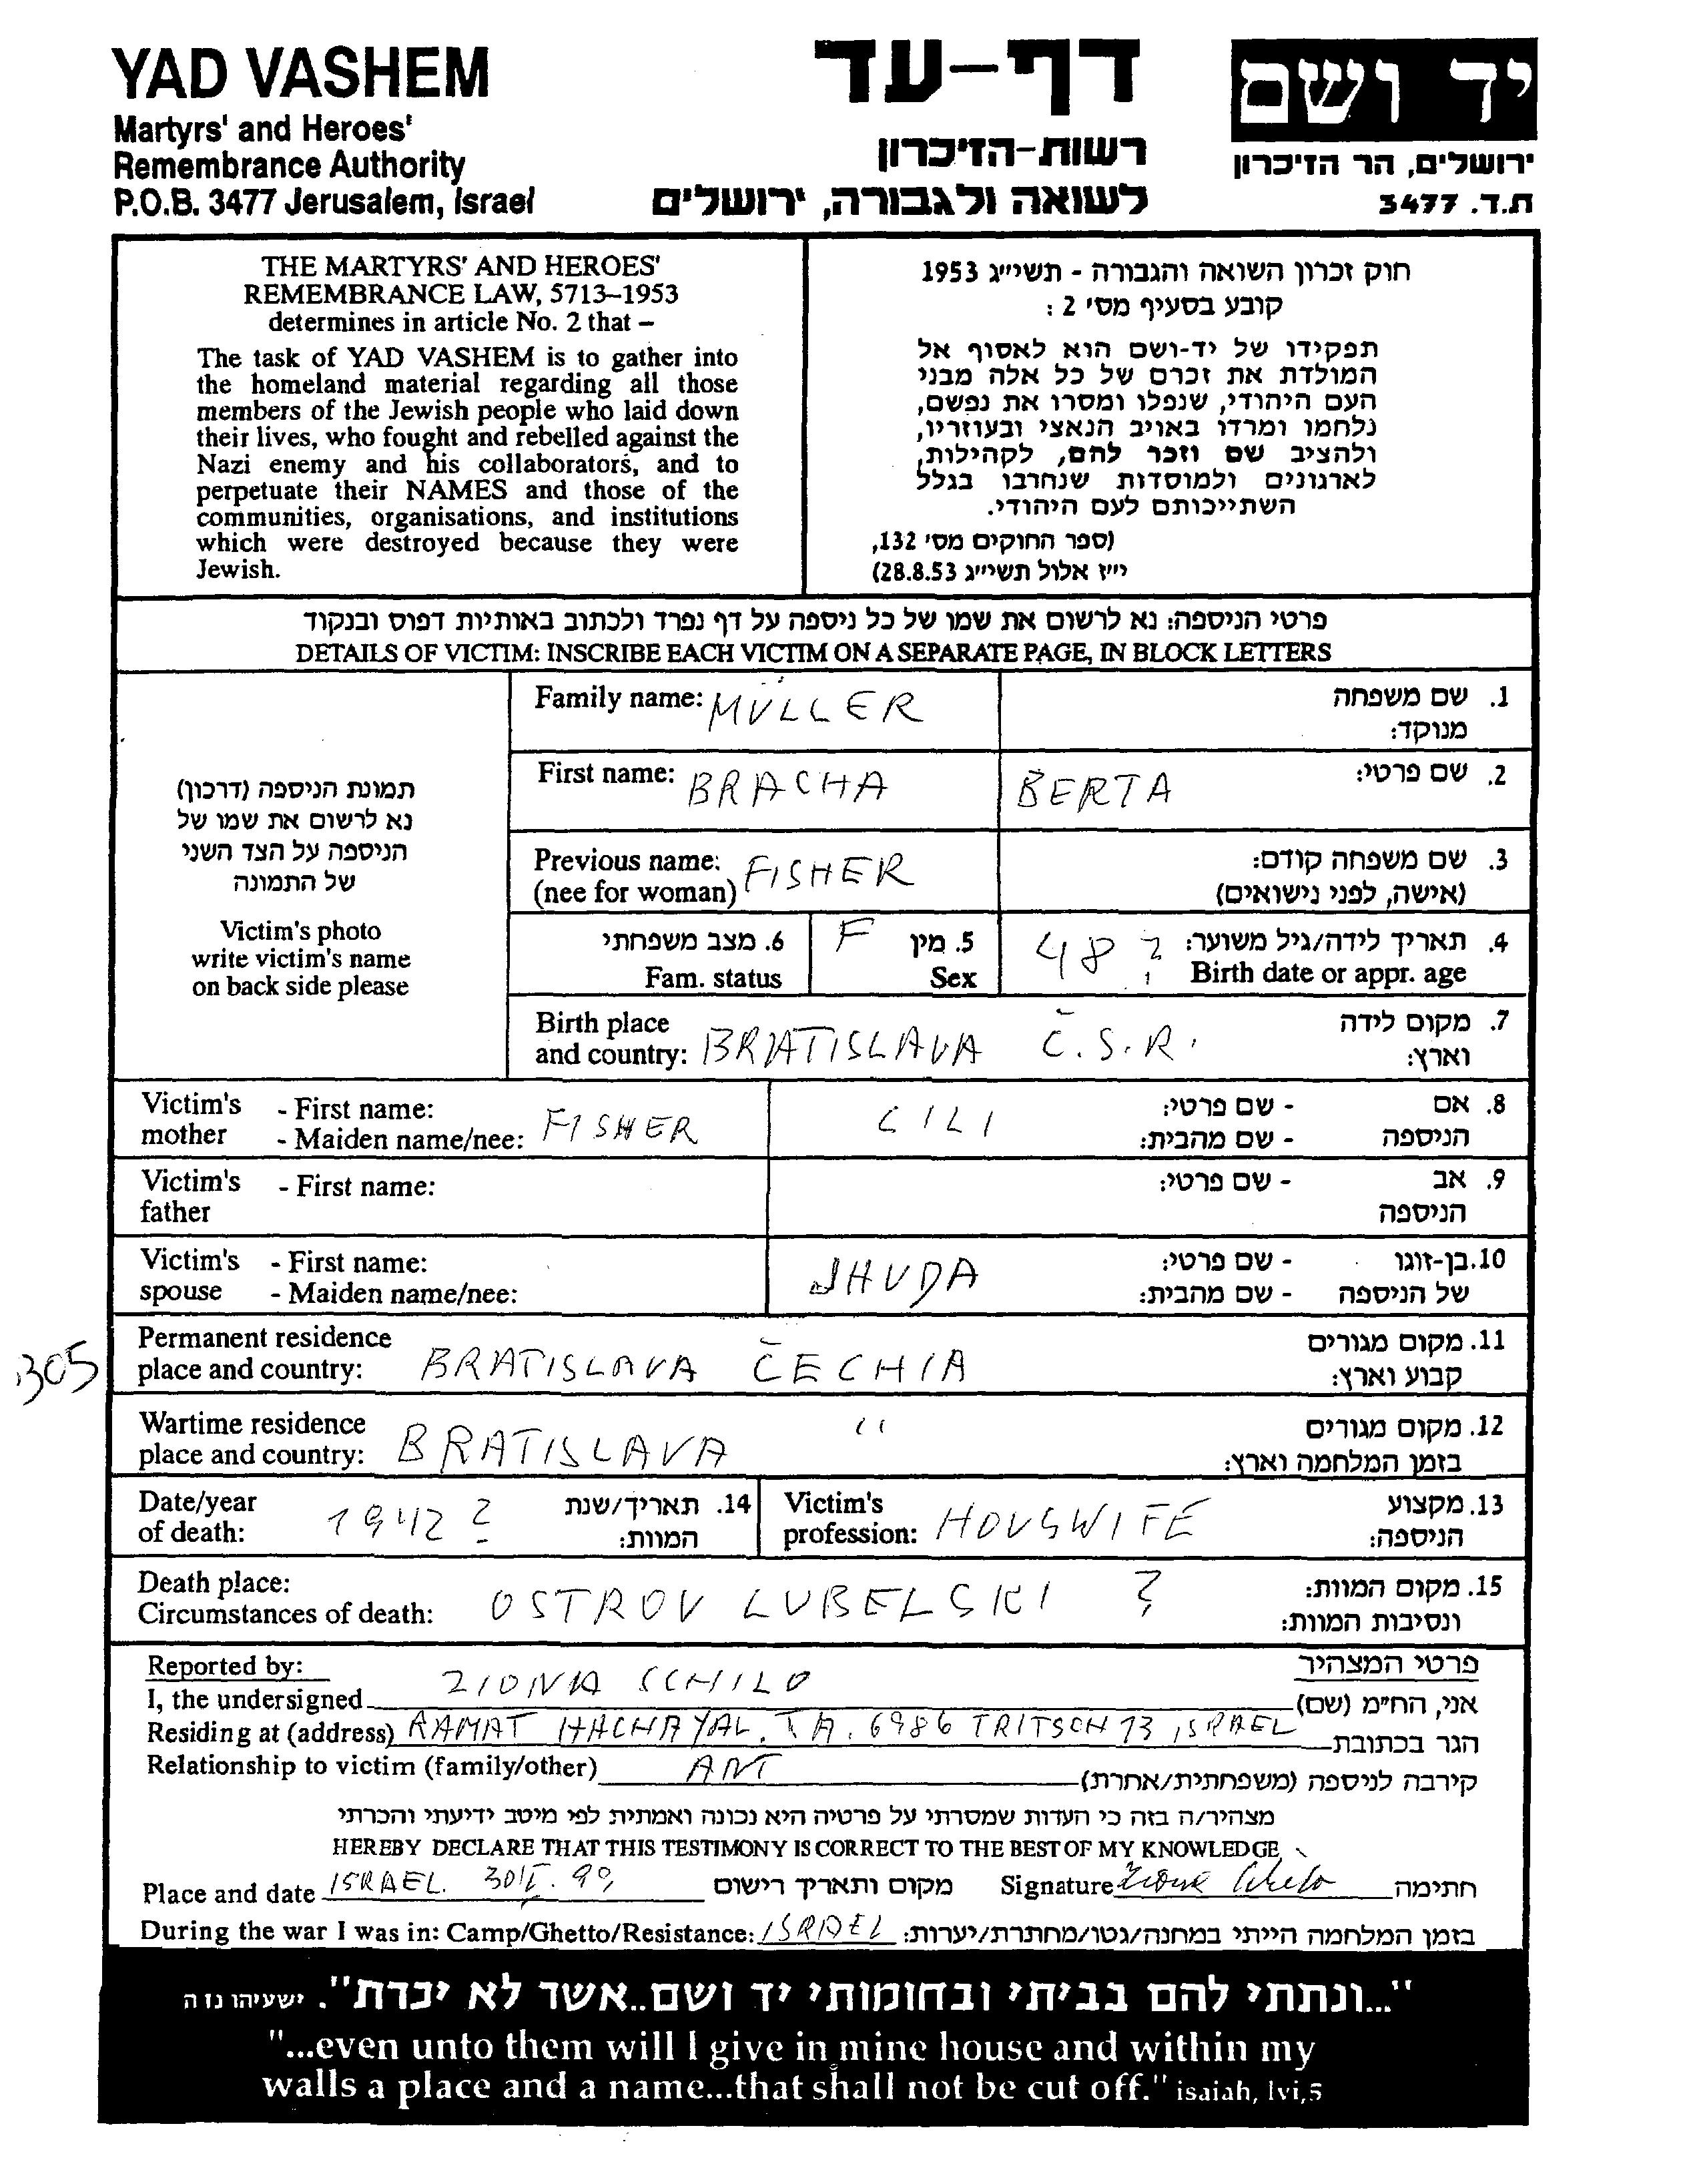 YAD VASHEM
Martyrs' and Heroes'
Remembrance Authority
P.O.B. 3477 Jerusalem, Israel
דף-עד
רשות-הזיכרון
לשואה ולגבורה, ירושלים
יד ושם
ירושלים, הר הזיכרון
ת.ד. 3477
THE MARTYRS' AND HEROES'
REMEMBRANCE LAW, 5713–1953
determines in article No. 2 that –
The task of YAD VASHEM is to gather into
the homeland material regarding all those
members of the Jewish people who laid down
their lives, who fought and rebelled against the
Nazi enemy and his collaborators, and to
perpetuate their NAMES and those of the
communities, organisations, and institutions
which were destroyed because they were
Jewish.
חוק זכרון השואה והגבורה - תשי״ג 1953
קובע בסעיף מס׳ 2 :
תפקידו של יד-ושם הוא לאסוף אל
המולדת את זכרם של כל אלה מבני
העם היהודי, שנפלו ומסרו את נפשם,
נלחמו ומרדו באויב הנאצי ובעוזריו,
ולהציב שם וזכר להם, לקהילות,
לארגונים ולמוסדות שנחרבו בגלל
השתייכותם לעם היהודי.
(ספר החוקים מס׳ 132,
י״ז אלול תשי״ג 28.8.53)
פרטי הניספה: נא לרשום את שמו של כל ניספה על דף נפרד ולכתוב באותיות דפוס ובנקוד
DETAILS OF VICTIM: INSCRIBE EACH VICTIM ON A SEPARATE PAGE, IN BLOCK LETTERS
תמונת הניספה (דרכון)
נא לרשום את שמו של
הניספה על הצד השני
של התמונה
Victim's photo
write victim's name
on back side please
Family name: MÜLLER 1. שם משפחה
מנוקד:
First name: BRACHA BERTA 2. שם פרטי:
Previous name: FISHER 3. שם משפחה קודם:
(nee for woman) (אישה, לפני נישואים)
6. מצב משפחתי 5. מין F 48 ? 4. תאריך לידה/גיל משוער:
Fam. status Sex Birth date or appr. age
Birth place 7. מקום לידה
and country: BRATISLAVA Č.S.R. וארץ:
Victim's - First name: CILI - שם פרטי: 8. אם
mother - Maiden name/nee: FISHER - שם מהבית: הניספה
Victim's - First name: - שם פרטי: 9. אב
father הניספה
Victim's - First name: JHUDA - שם פרטי: 10. בן-זוגו
spouse - Maiden name/nee: - שם מהבית: של הניספה
305
Permanent residence 11. מקום מגורים
place and country: BRATISLAVA ČECHIA קבוע וארץ:
Wartime residence 12. מקום מגורים
place and country: BRATISLAVA " בזמן המלחמה וארץ:
Date/year 1942 ? 14. תאריך/שנת Victim's 13. מקצוע
of death: המוות: profession: HOUSWIFE הניספה:
Death place: 15. מקום המוות:
Circumstances of death: OSTROV LUBELSKI ? ונסיבות המוות:
Reported by: פרטי המצהיר
I, the undersigned ZIONA SCHILO אני, הח״מ (שם)
Residing at (address) RAMAT HACHAYAL. TA. 6986 TRITSCH 13 ISRAEL הגר בכתובת
Relationship to victim (family/other) ANT קירבה לניספה (משפחתית/אחרת)
מצהיר/ה בזה כי העדות שמסרתי על פרטיה היא נכונה ואמתית לפי מיטב ידיעתי והכרתי
HEREBY DECLARE THAT THIS TESTIMONY IS CORRECT TO THE BEST OF MY KNOWLEDGE
Place and date ISRAEL. מקום ותאריך רישום Signature חתימה
During the war I was in: Camp/Ghetto/Resistance: ISRAEL בזמן המלחמה הייתי במחנה/גטו/מחתרת/יערות:
"...ונתתי להם בביתי ובחומותי יד ושם..אשר לא יכרת". ישעיהו נז ה
"...even unto them will I give in mine house and within my
walls a place and a name...that shall not be cut off." isaiah, lvi,5